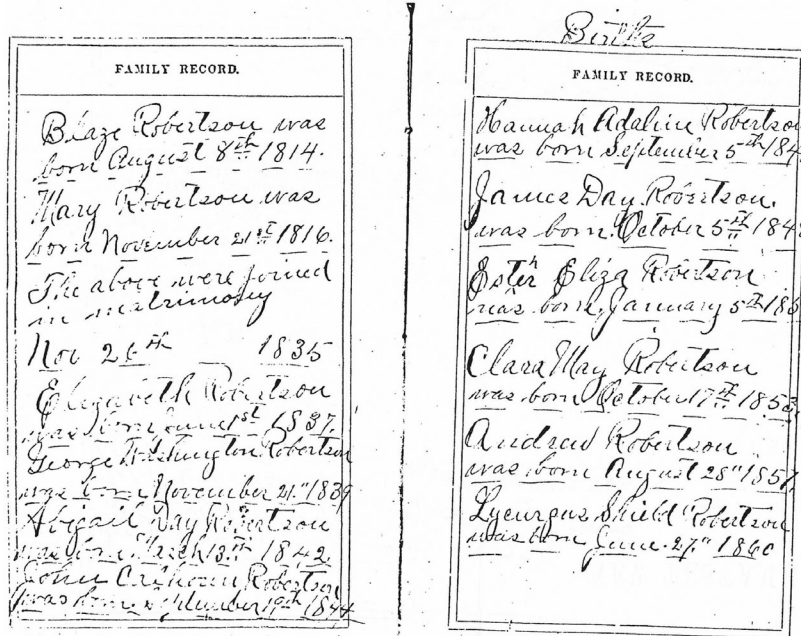 FAMILY RECORD.
Blaze Robertson was
born August 8th 1814.
Mary Robertson was
born November 21st 1816.
The above were joined
in matrimony
Nov 26th 1835
Elizabeth Robertson
was born June 1st 1837.
George Washington Robertson
was born November 21" 1839
Abigail Day Robertson
was born March 13th 1842.
John Calhoun Robertson
was born September 19th 1844
Births
FAMILY RECORD.
Hannah Adaline Robertson
was born September 5th 184
James Day Robertson.
was born October 5th 184
Ester Eliza Robertson
was born January 5th 185
Clara May Robertson
was born October 17th 1853
Andrew Robertson
was born August 28" 1857
Lycurgus Shield Robertson
was born June 27" 1860